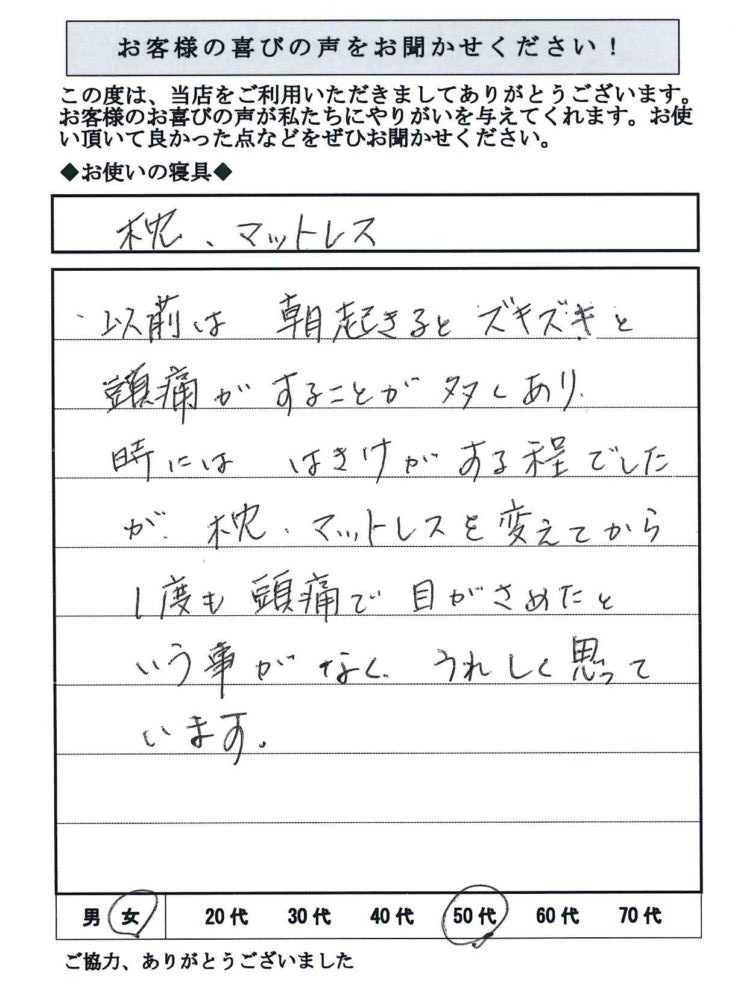 お客様の喜びの声をお聞かせください！
この度は、当店をご利用いただきましてありがとうございます。
お客様のお喜びの声が私たちにやりがいを与えてくれます。お使
い頂いて良かった点などをぜひお聞かせください。
◆お使いの寝具◆
枕、マットレス
以前は 朝起きると ズキズキと
頭痛がすることが多くあり、
時には はきけがある程でした
が、枕、マットレスを変えてから
1度も頭痛で目がさめたと
いう事がなく、うれしく思って
います。
男 女 20代 30代 40代 50代 60代 70代
ご協力、ありがとうございました